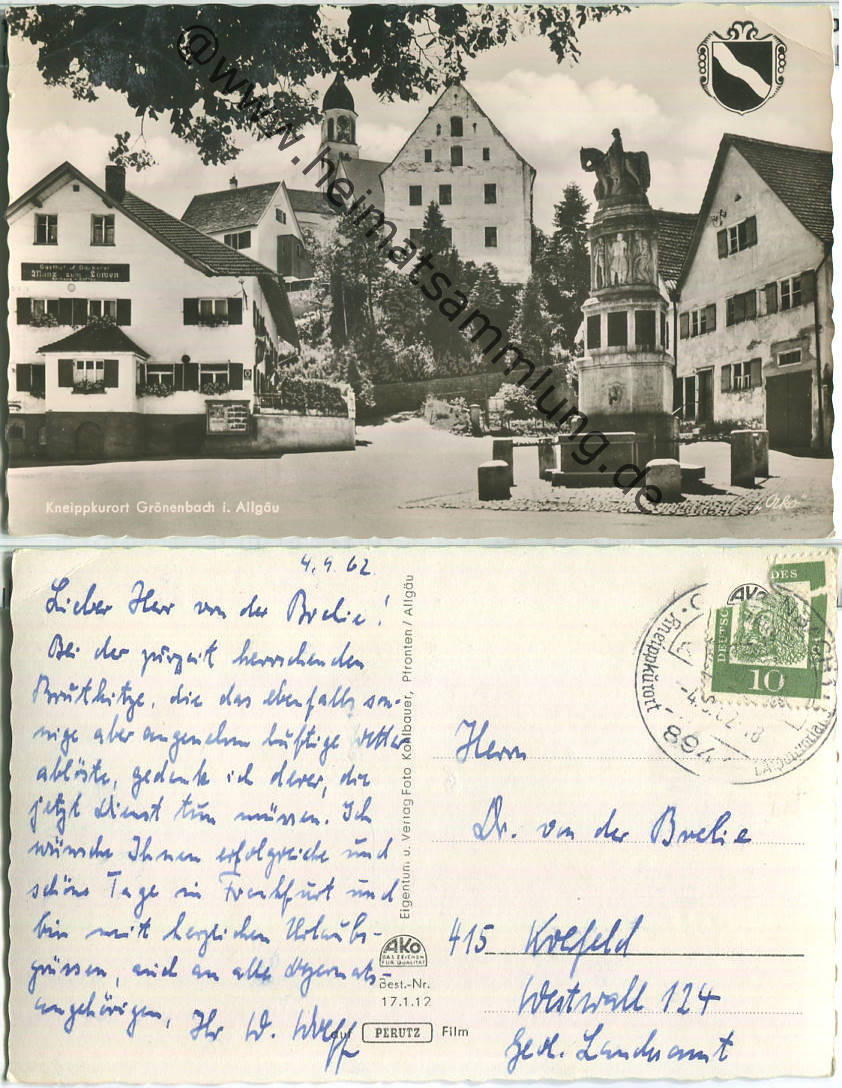 Gasthof u. Bäckerei
Manz zum Löwen
@www.heimatsammlung.de
Kneippkurort Grönenbach i. Allgäu
„Ako"
4.9.62.
Lieber Herr von der Brelie!
Bei der zurzeit herrschenden
Bruthitze, die das ebenfalls son-
nige aber angenehm luftige Wetter
ablöste, gedenk ich derer, die
jetzt Dienst tun müssen. Ich
wünsche Ihnen erfolgreiche und
schöne Tage in Frankfurt und
bin mit herzlichen Urlaubs-
grüssen, auch an alle Dezernats-
angehörigen, Ihr W. Wolff
Eigentum u. Verlag Foto Kohlbauer, Pfronten / Allgäu
AKO
DAS ZEICHEN
FÜR QUALITÄT
Best.-Nr.
17.1.12
auf PERUTZ Film
Kneippkurort
8941
DEUTSCHE
10
Herrn
Dr. von der Brelie
415 Krefeld
Westwall 124
Geol. Landesamt